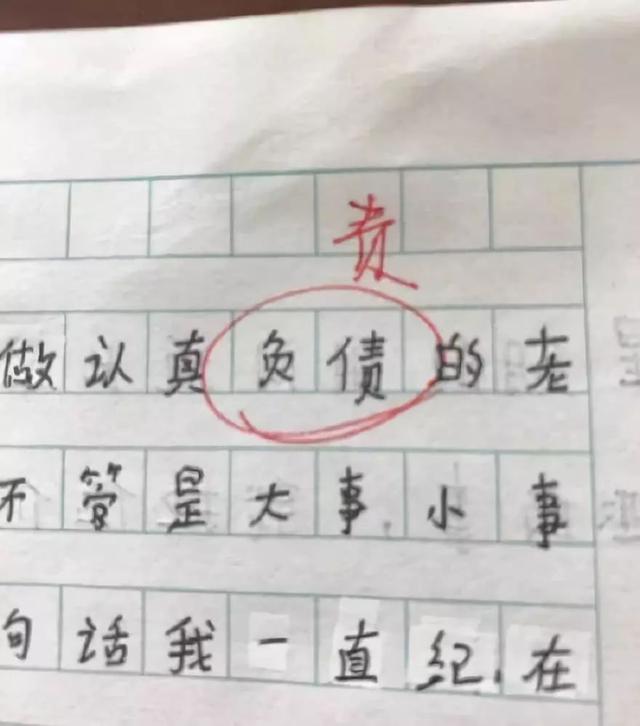 责
做认真负债的老
不管是大事小事
句话我一直纪在